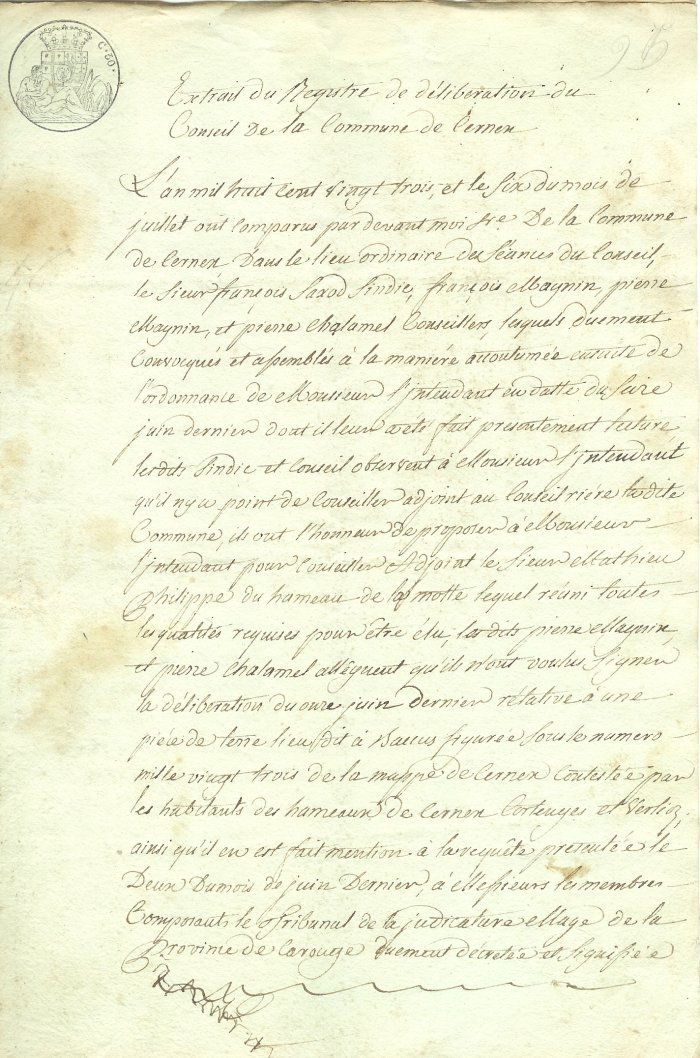 C. 50.
95
Extrait du Registre de déliberation du
Conseil De la Commune de Cernex
L'an mil huit cent vingt trois, et le six du mois de
juillet ont comparus par devant moi Sre. De la Commune
de Cernex Dans le lieu ordinaire des Séances du Conseil,
le Sieur françois Saxod Sindic, françois Magnin, pierre
Magnin, et pierre Chalamel Conseillers, lesquels duement
Convoqués et assemblés à la maniére accoutumée ensuite de
l'ordonnance de Monsieur l'Intendant en datte du seize
juin dernier dont il leur a eté fait presentement lecture
les dits Sindic et Conseil observent à Monsieur l'Intendant
qu'il n'y a point de Conseiller adjoint au Conseil riére la dite
Commune, ils ont l'honneur de proposer à Monsieur
l'Intendant pour Conseiller Adjoint le Sieur Mathieu
Philippe du hameau de la motte lequel réuni toutes
les qualités requises pour être élu, les dits pierre Magnin,
et pierre Chalamel alléguent qu'ils n'ont voulus Signer
la déliberation du onze juin dernier rélative à une
piéce de terre lieu dit à figurée Sous le numero
mille vingt trois de la mappe de Cernex Contestée par
les habitants des hameaux de Cernex Cortenges et Verlioz,
ainsi qu'il en est fait mention à la requête presentée le
Deux Du mois de juin Dernier, à Messieurs les membres
Composants le Tribunal de la judicature Mage de la
Province de Carouge duement décretée et signifiée